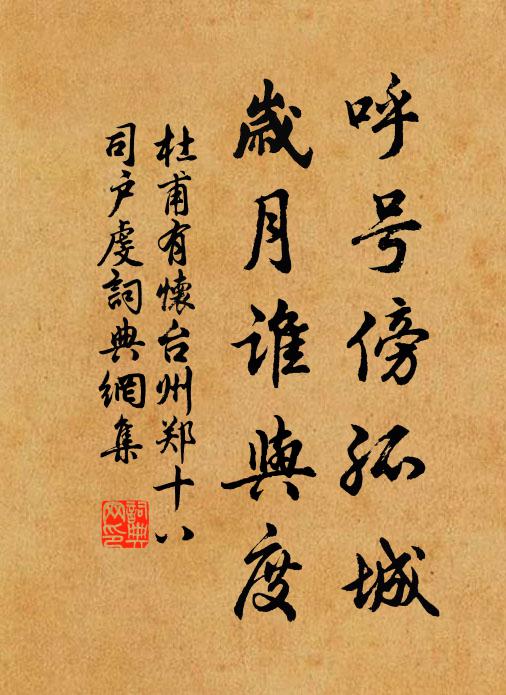 呼号傍孤城
歳月谁與度
杜甫有懷台州郑十八
司户虔詞典網集
詞典網印